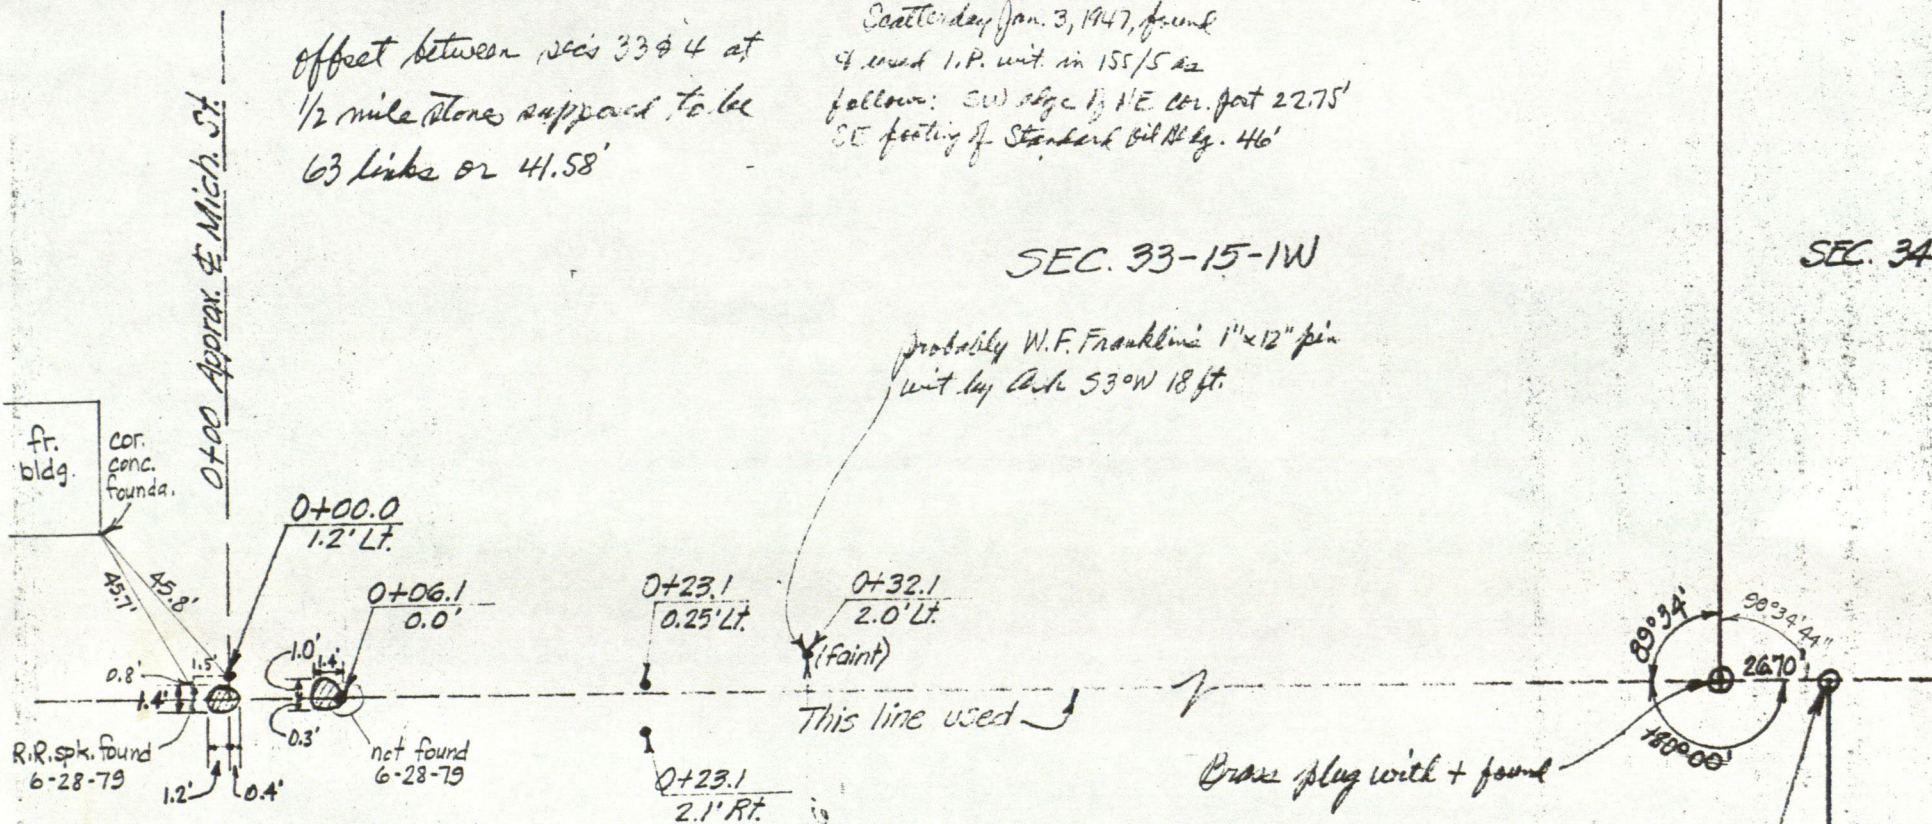 offset between sec's 33 & 4 at
1/2 mile stones supposed to be
63 links or 41.58'
Scatterday Jan. 3, 1947, found
& used I.P. wit. in 155/5 as
follows: SW edge of NE cor. post 22.75'
SE footing of Standard Oil Bldg. 46'
0+00 Approx. ℄ Mich. St.
SEC. 33-15-1W
SEC. 34
probably W.F. Franklin's 1"x12" pin
wit by Ash S3°W 18 ft.
fr.
bldg.
cor.
conc.
founda.
45.7'
45.8'
0+00.0
1.2' Lt.
0+06.1
0.0'
0+23.1
0.25' Lt.
0+32.1
2.0' Lt.
(faint)
0.8'
1.5'
1.4'
1.0'
1.4'
0.3'
R.R. spk. found
6-28-79
1.2'
0.4'
not found
6-28-79
0+23.1
2.1' Rt.
This line used
89°34'
90°34'44"
26.70'
180°00'
Brass plug with + found